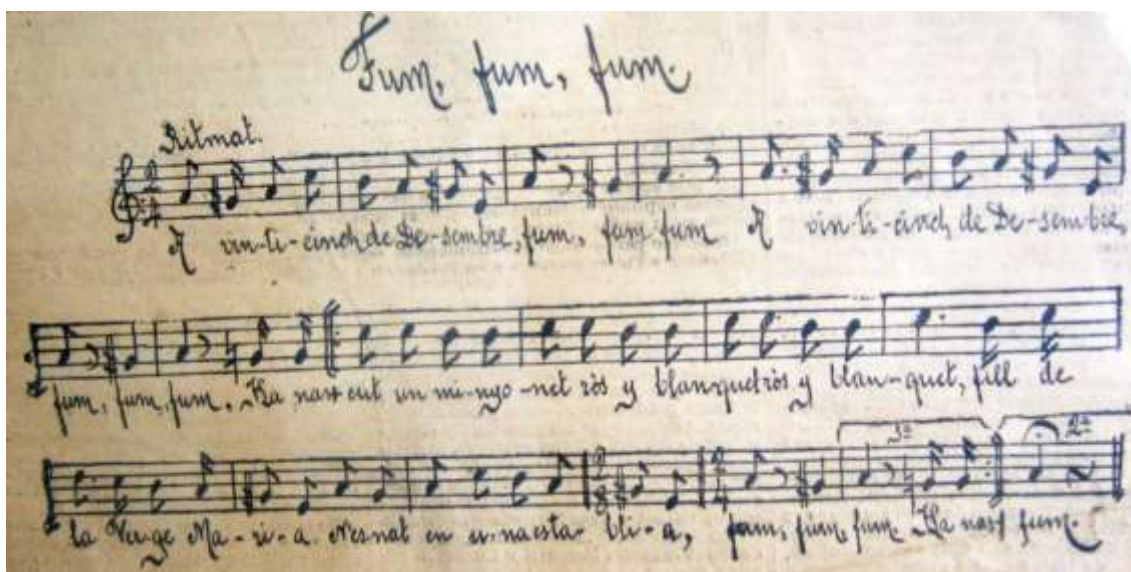 Fum, fum, fum.
Ritmat.
A vin-ti-cinch de De-sembre, fum, fum fum A vin-ti-cinch de De-sembre,
fum, fum, fum. Ha nascut un mi-nyo-net ròs y blanquet ròs y blan-quet, fill de
la Verge Ma-ri-a. N'es nat en u-na esta-bli-a, fum, fum, fum. Ha nasc fum.